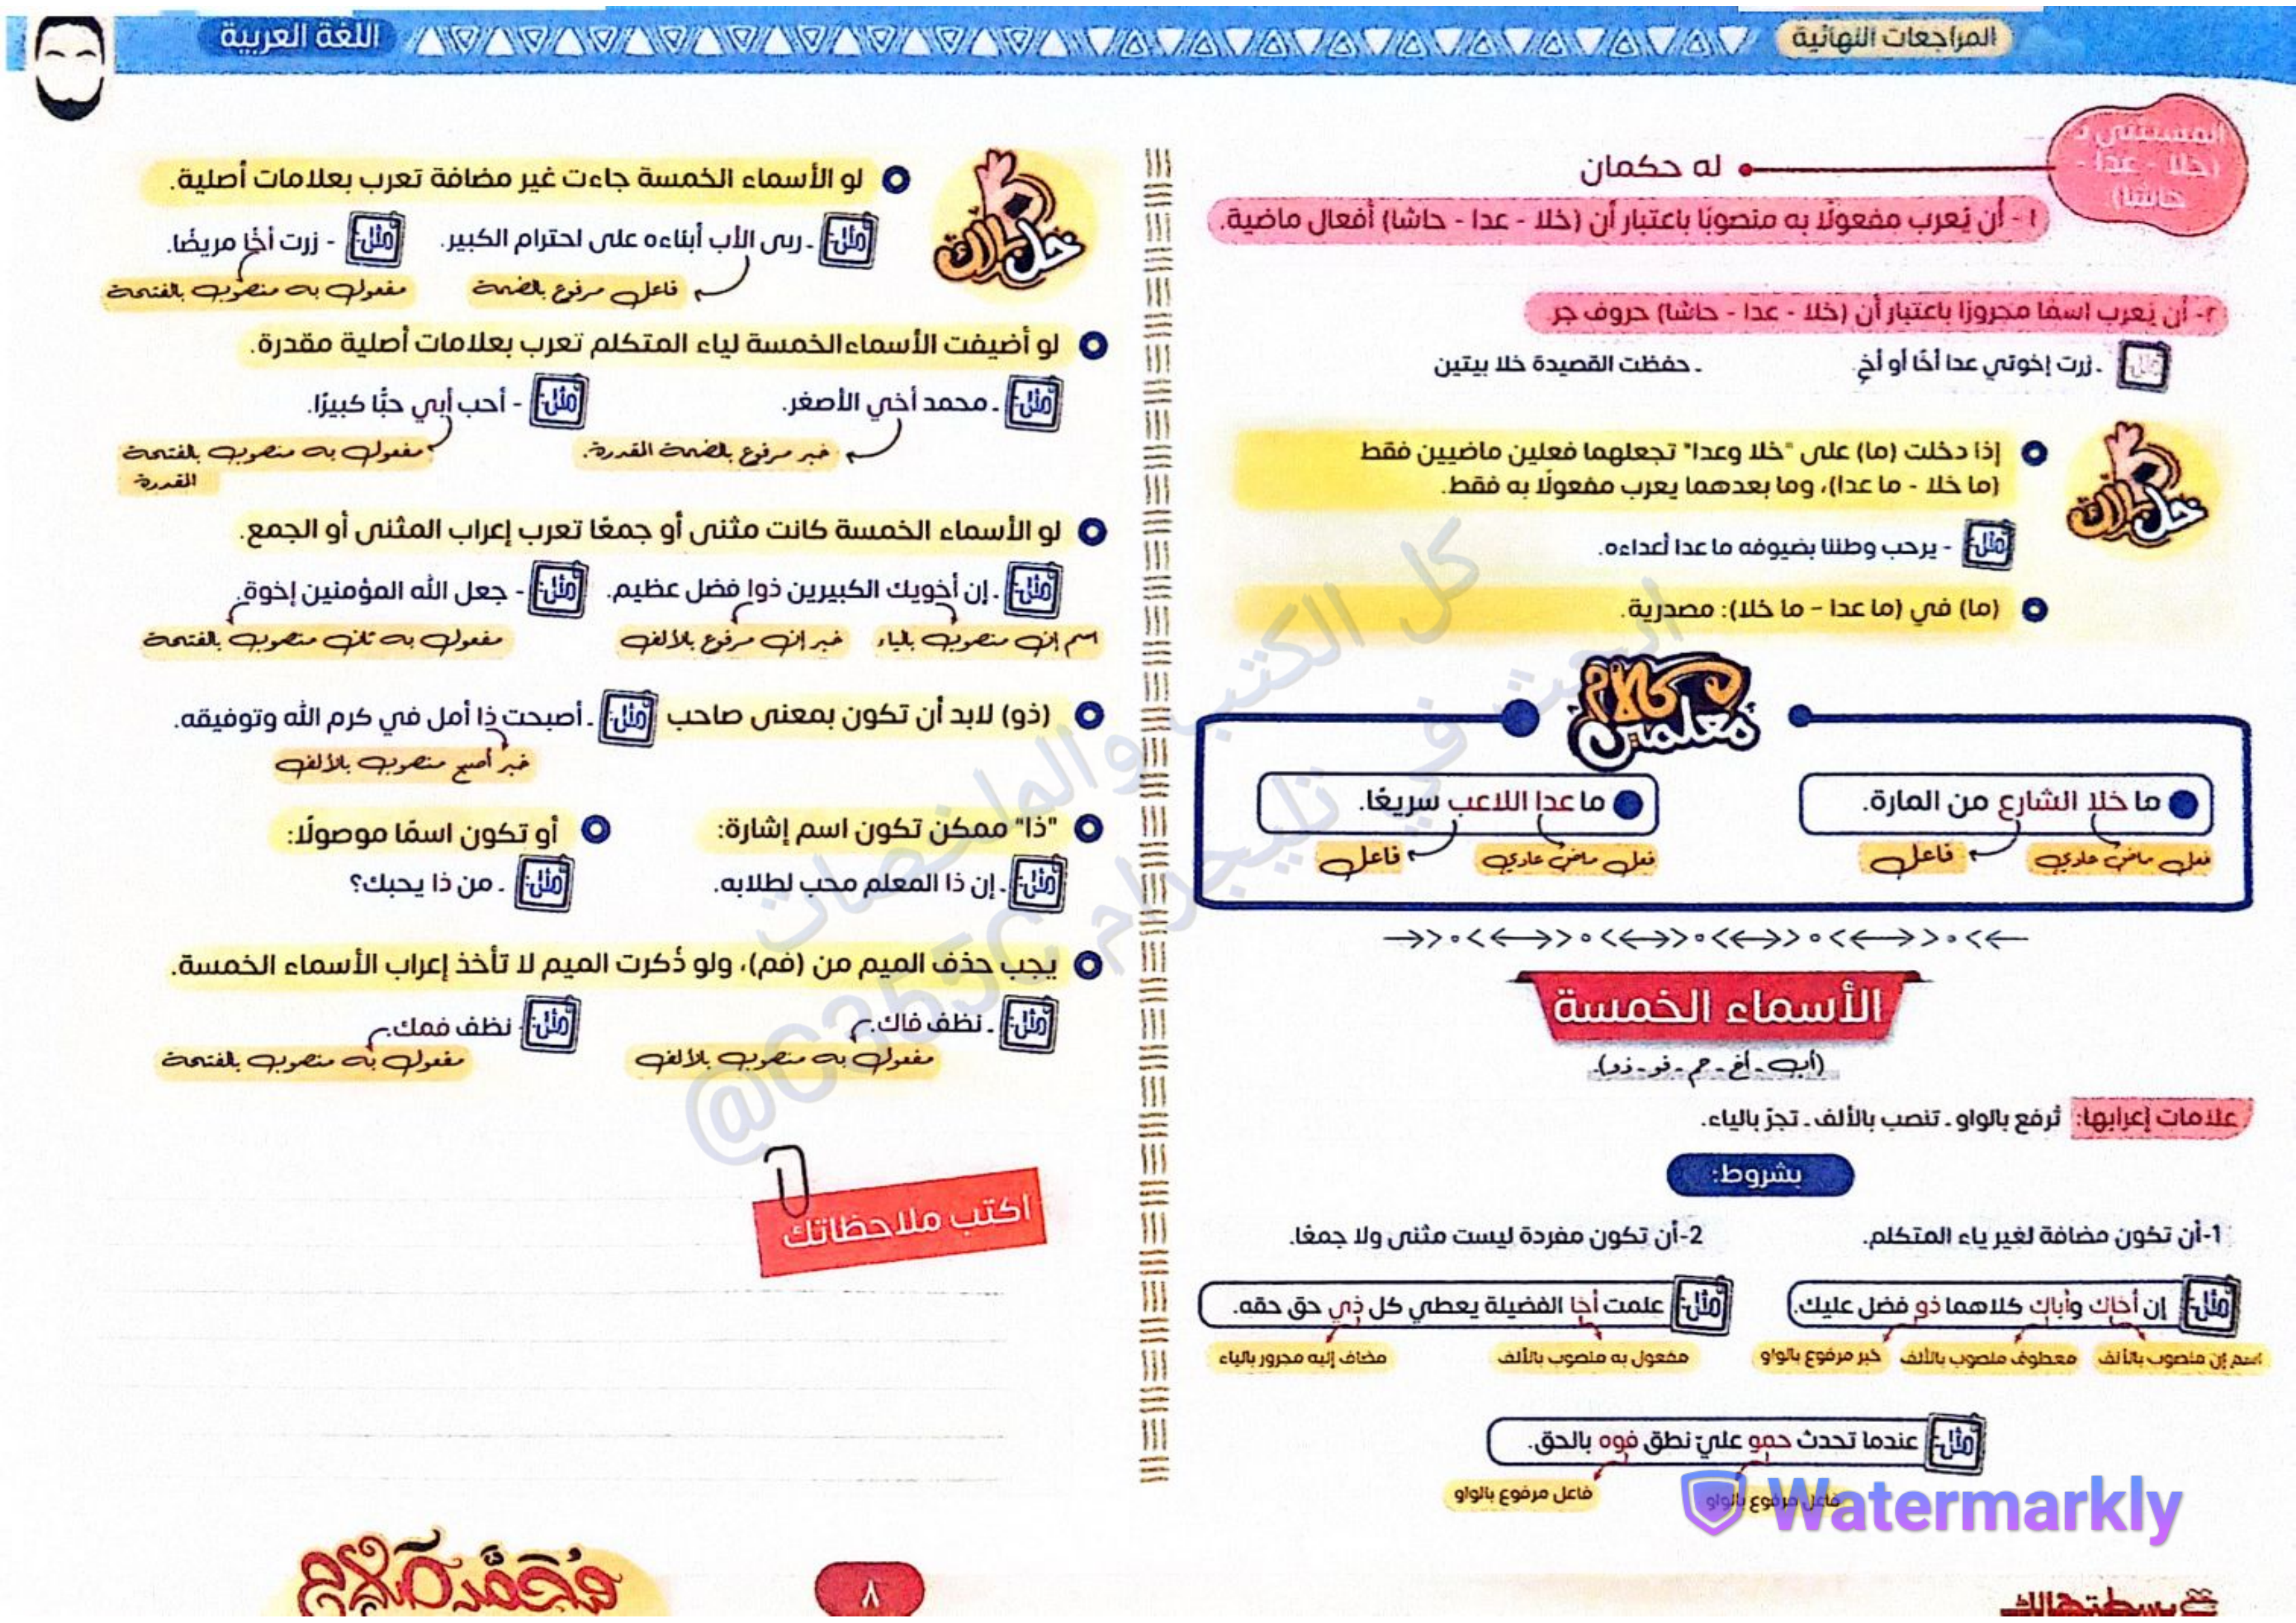 المراجعات النهائية
اللغة العربية
المستثنى بـ
(خلا - عدا -
حاشا)
له حكمان
١ - أن يُعرب مفعولًا به منصوبًا باعتبار أن (خلا - عدا - حاشا) أفعال ماضية.
٢- أن يُعرب اسمًا مجرورًا باعتبار أن (خلا - عدا - حاشا) حروف جر.
مثل: - زرت إخوتي عدا أخًا أو أخٍ. - حفظت القصيدة خلا بيتين
خلي بالك
إذا دخلت (ما) على "خلا وعدا" تجعلهما فعلين ماضيين فقط
(ما خلا - ما عدا)، وما بعدهما يعرب مفعولًا به فقط.
مثل: - يرحب وطننا بضيوفه ما عدا أعداءه.
(ما) في (ما عدا – ما خلا): مصدرية.
كلام معلمين
ما خلا الشارع من المارة.
فعل ماض عادي
فاعل
ما عدا اللاعب سريعًا.
فعل ماض عادي
فاعل
الأسماء الخمسة
(أب - أخ - حم - فو - ذو).
علامات إعرابها: تُرفع بالواو - تنصب بالألف - تجرّ بالياء.
بشروط:
1-أن تكون مضافة لغير ياء المتكلم.
2-أن تكون مفردة ليست مثنى ولا جمعًا.
مثل: إن أخاك وأباك كلاهما ذو فضل عليك.
اسم إن منصوب بالألف
معطوف منصوب بالألف
خبر مرفوع بالواو
مثل: علمت أخا الفضيلة يعطي كل ذي حق حقه.
مفعول به منصوب بالألف
مضاف إليه مجرور بالياء
مثل: عندما تحدث حمو عليّ نطق فوه بالحق.
فاعل مرفوع بالواو
فاعل مرفوع بالواو
خلي بالك
لو الأسماء الخمسة جاءت غير مضافة تعرب بعلامات أصلية.
مثل: - ربى الأب أبناءه على احترام الكبير. مثل: - زرت أخًا مريضًا.
فاعل مرفوع بالضمة
مفعول به منصوب بالفتحة
لو أضيفت الأسماء الخمسة لياء المتكلم تعرب بعلامات أصلية مقدرة.
مثل: - محمد أخي الأصغر. مثل: - أحب أبي حبًّا كبيرًا.
خبر مرفوع بالضمة المقدرة.
مفعول به منصوب بالفتحة
المقدرة
لو الأسماء الخمسة كانت مثنى أو جمعًا تعرب إعراب المثنى أو الجمع.
مثل: - إن أخويك الكبيرين ذوا فضل عظيم. مثل: - جعل الله المؤمنين إخوة.
اسم إن منصوب بالياء
خبر إن مرفوع بالألف
مفعول به ثان منصوب بالفتحة
(ذو) لابد أن تكون بمعنى صاحب مثل: - أصبحت ذا أمل في كرم الله وتوفيقه.
خبر أصبح منصوب بالألف
"ذا" ممكن تكون اسم إشارة:
مثل: - إن ذا المعلم محب لطلابه.
أو تكون اسمًا موصولًا:
مثل: - من ذا يحبك؟
يجب حذف الميم من (فم)، ولو ذُكرت الميم لا تأخذ إعراب الأسماء الخمسة.
مثل: - نظف فاك. مثل: - نظف فمك.
مفعول به منصوب بالألف
مفعول به منصوب بالفتحة
اكتب ملاحظاتك
كل الكتب والملخصات
ابحث في تليجرام
@C355C
Watermarkly
٨